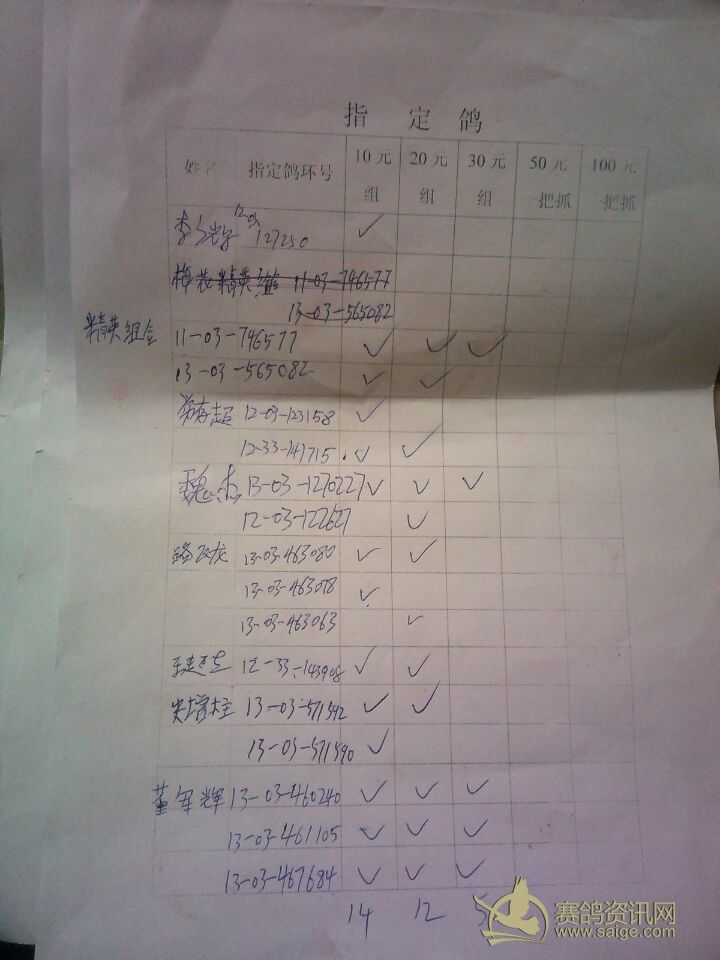 指 定 鸽
姓名 指定鸽环号 10元组 20元组 30元组 50元一把抓 100元一把抓
12-03
127250 ✓
精英组 11-03-746577
13-03-565082
精英组合 11-03-746577 ✓ ✓ ✓
13-03-565082 ✓ ✓
12-03-123158 ✓
12-33-141715 ✓ ✓
魏杰 13-03-1270227 ✓ ✓ ✓
12-03-122627 ✓
13-03-463080 ✓ ✓
13-03-463078 ✓
13-03-463063 ✓
12-33-143908 ✓ ✓
13-03-571542 ✓ ✓
13-03-571590 ✓
董军辉 13-03-460240 ✓ ✓ ✓
13-03-461105 ✓ ✓ ✓
13-03-467684 ✓ ✓ ✓
14 12 5
赛鸽资讯网
www.saige.com